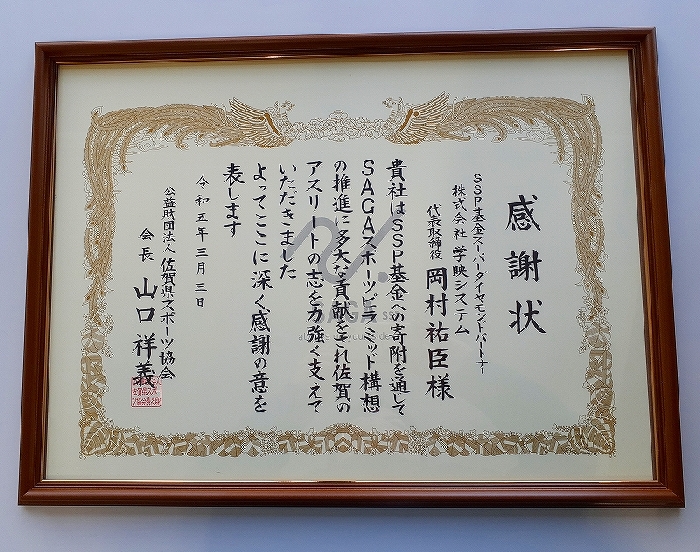 感謝状
SSP基金スーパーダイヤモンドパートナー
株式会社 学映システム
代表取締役 岡村祐臣様
貴社はSSP基金への寄附を通して
SAGAスポーツピラミッド構想
の推進に多大な貢献をされ佐賀の
アスリートの志を力強く支えて
いただきました
よってここに深く感謝の意を
表します
令和五年三月三日
公益財団法人 佐賀県スポーツ協会
会長 山口祥義
SAGA SSP